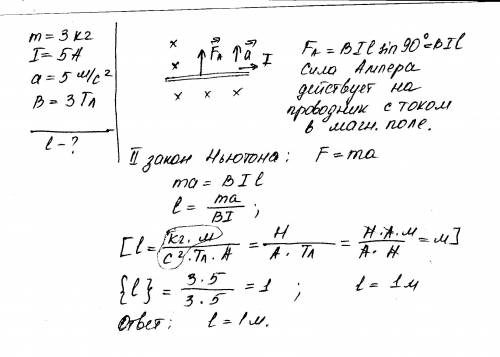 m = 3 кг
I = 5 А
a = 5 м/с²
B = 3 Тл
l - ?
x x F⃗А a⃗ I
x
x x x
FА = BIl sin 90° = BIl
Сила Ампера
действует на
проводник с током
в магн. поле.
II закон Ньютона: F = ma
ma = BIl
l = ma/BI ;
[l = кг·м/с²·Тл·А = Н/А·Тл = Н·А·м/А·Н = м]
{l} = 3·5/3·5 = 1 ; l = 1м
Ответ: l = 1м.